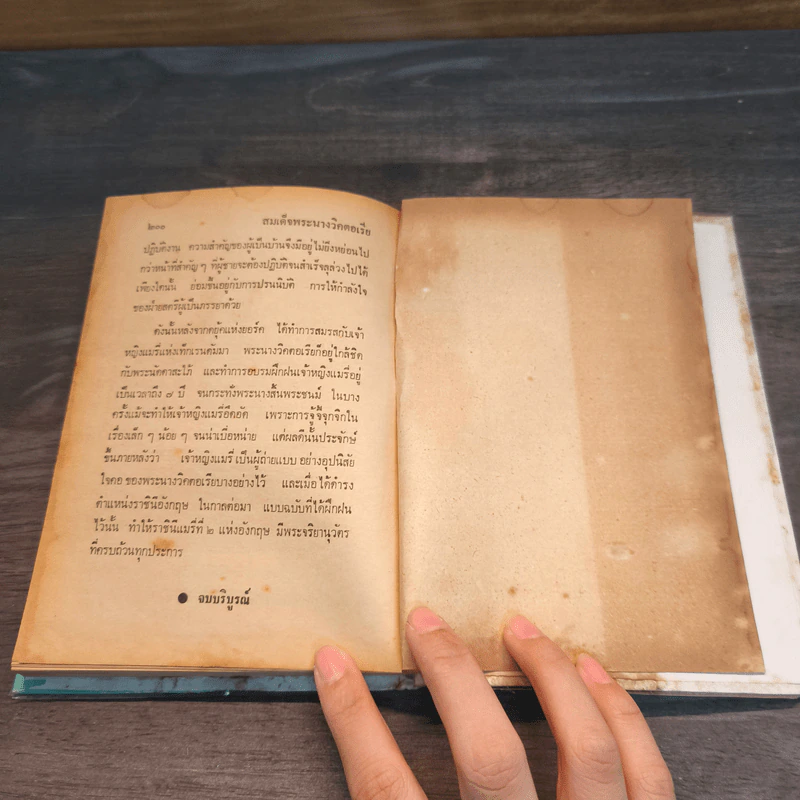 ๒๐๐ สมเด็จพระนางวิคตอเรีย
ปฏิบัติงาน ความสำคัญของผู้เป็นบ้านจึงมีอยู่ไม่ยิ่งหย่อนไป
กว่าหน้าที่สำคัญ ๆ ที่ผู้ชายจะต้องปฏิบัติจนสำเร็จลุล่วงไปได้
เพียงใดนั้น ย่อมขึ้นอยู่กับการปรนนิบัติ การให้กำลังใจ
ของฝ่ายสตรีผู้เป็นภรรยาด้วย
ดังนั้นหลังจากดยุ๊คแห่งยอร์ค ได้ทำการสมรสกับเจ้า
หญิงแมรี่แห่งเท็กเรนดัมมา พระนางวิคตอเรียก็อยู่ใกล้ชิด
กับพระนัดดาสะใภ้ และทำการอบรมฝึกฝนเจ้าหญิงแมรี่อยู่
เป็นเวลาถึง ๗ ปี จนกระทั่งพระนางสิ้นพระชนม์ ในบาง
ครั้งแม้จะทำให้เจ้าหญิงแมรี่อึดอัด เพราะการจู้จี้จุกจิกใน
เรื่องเล็ก ๆ น้อย ๆ จนน่าเบื่อหน่าย แต่ผลดีนั้นประจักษ์
ขึ้นภายหลังว่า เจ้าหญิงแมรี่ เป็นผู้ถ่ายแบบ อย่างอุปนิสัย
ใจคอ ของพระนางวิคตอเรียบางอย่างไว้ และเมื่อ ได้ดำรง
ตำแหน่งราชินีอังกฤษ ในกาลต่อมา แบบฉบับที่ได้ฝึกฝน
ไว้นั้น ทำให้ราชินีแมรี่ที่ ๒ แห่งอังกฤษ มีพระจริยานุวัตร
ที่ครบถ้วนทุกประการ
● จบบริบูรณ์